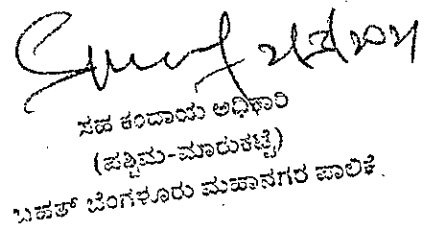 ಸಹ ಕಂದಾಯ ಅಧಿಕಾರಿ
(ಪಶ್ಚಿಮ-ಮಾರುಕಟ್ಟೆ)
ಬೃಹತ್ ಬೆಂಗಳೂರು ಮಹಾನಗರ ಪಾಲಿಕೆ.